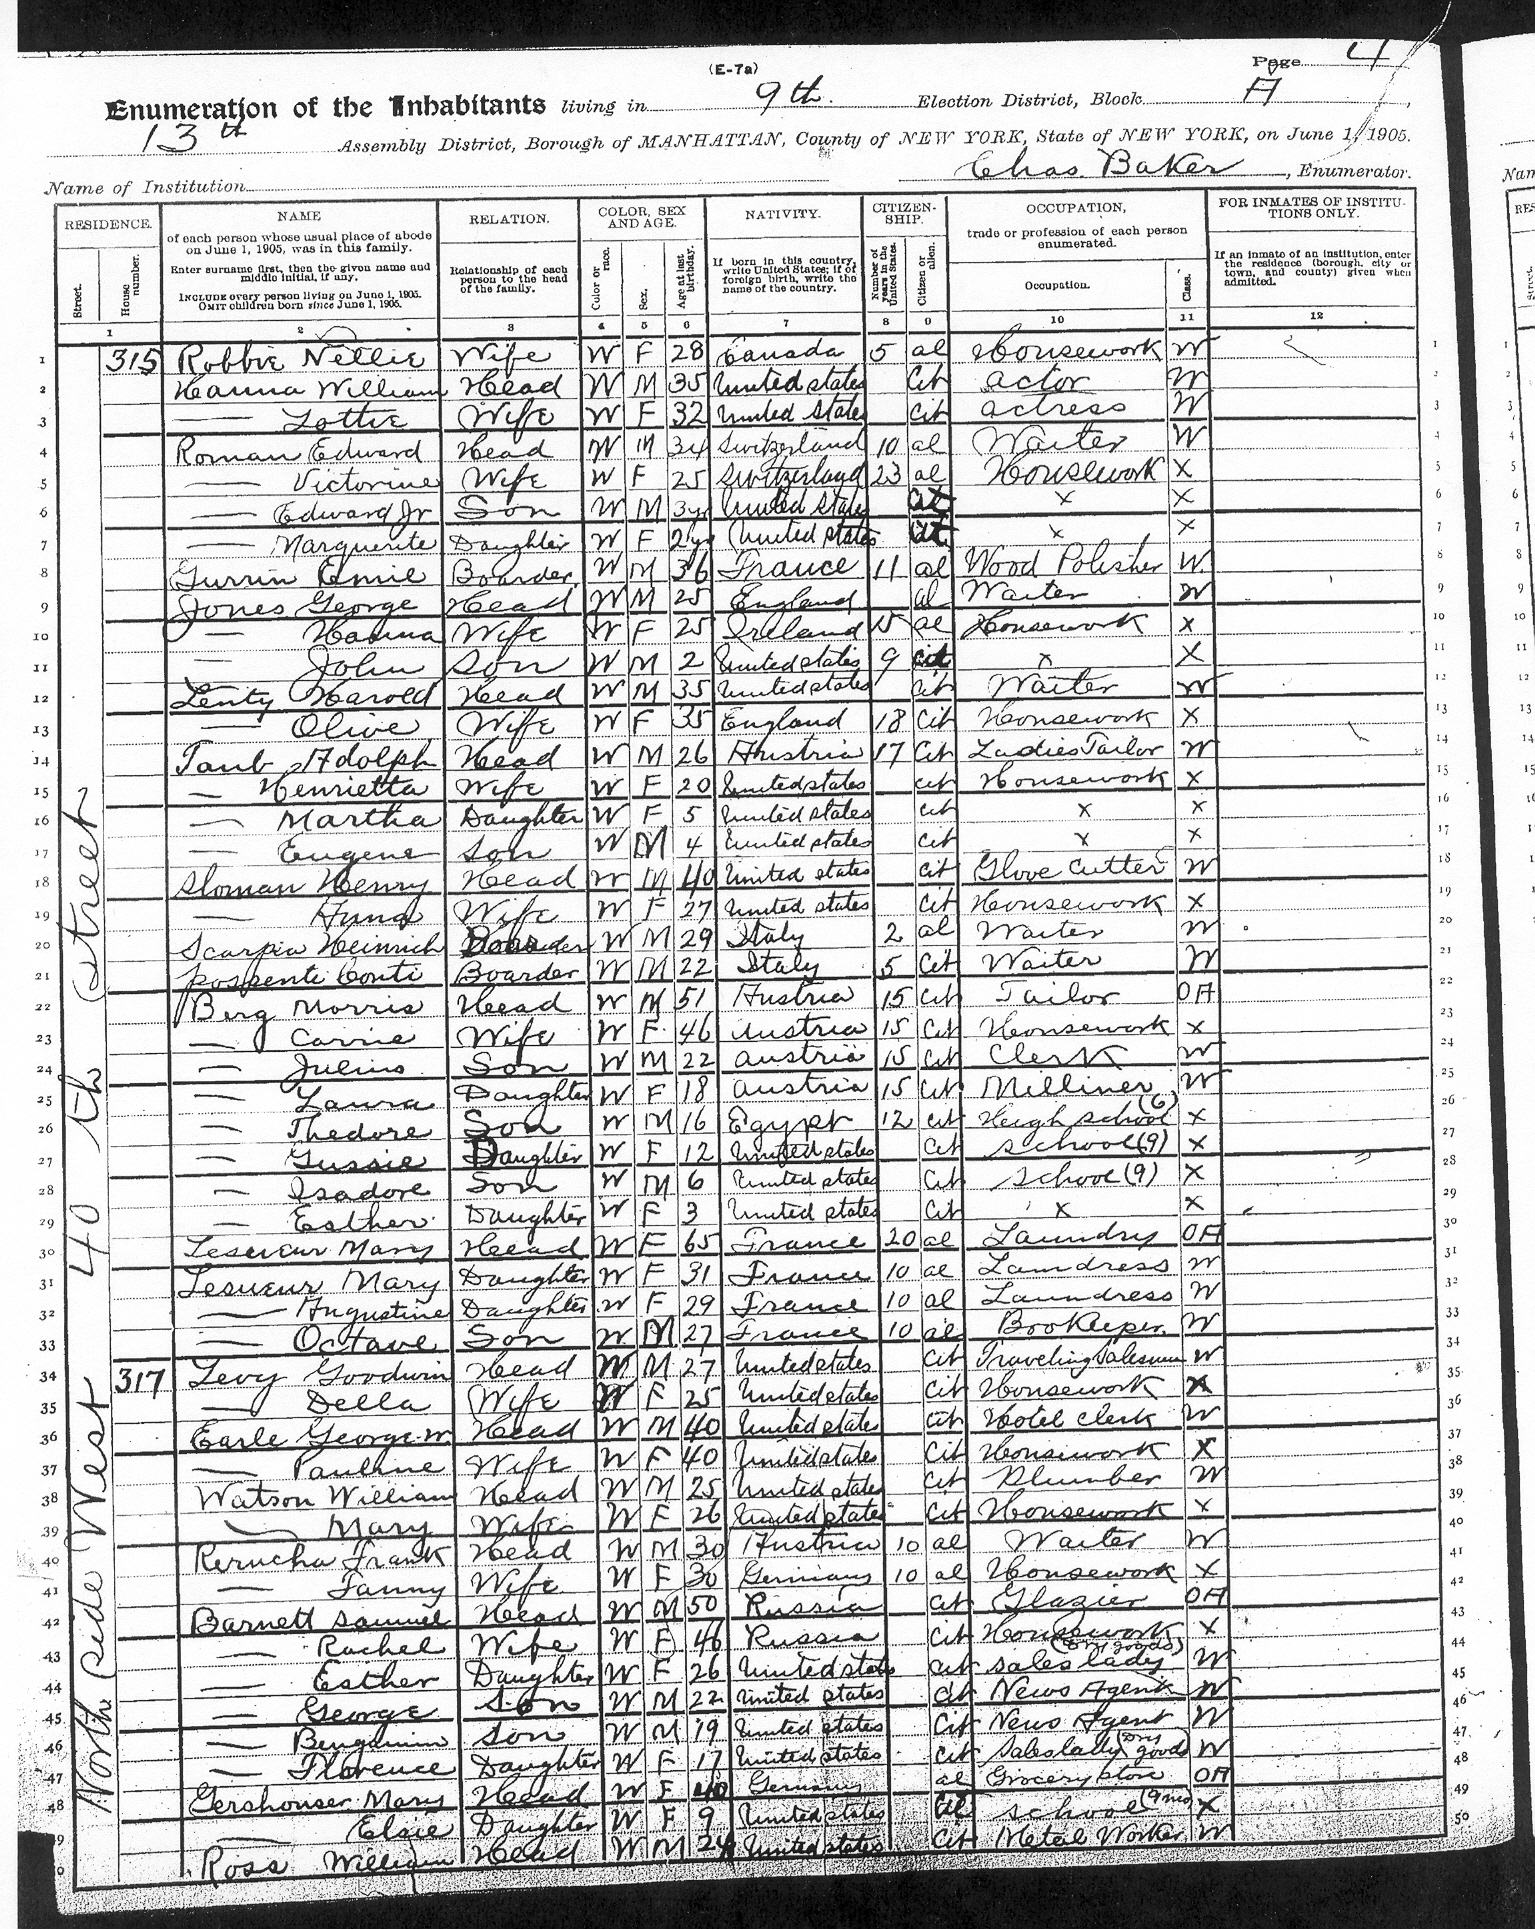 (E-7a)
Page 4
Enumeration of the Inhabitants living in 9th. Election District, Block A,
13th Assembly District, Borough of MANHATTAN, County of NEW YORK, State of NEW YORK, on June 1, 1905.
Name of Institution Chas. Baker, Enumerator.
RESIDENCE. NAME RELATION. COLOR, SEX AND AGE. NATIVITY. CITIZENSHIP. OCCUPATION, FOR INMATES OF INSTITUTIONS ONLY.
Street. House number.
of each person whose usual place of abode on June 1, 1905, was in this family.
Enter surname first, then the given name and middle initial, if any.
INCLUDE every person living on June 1, 1905. OMIT children born since June 1, 1905.
Relationship of each person to the head of the family.
Color or race. Sex. Age at last birthday.
If born in this country, write United States; if of foreign birth, write the name of the country.
Number of years in the United States. Citizen or alien.
trade or profession of each person enumerated.
Occupation. Class.
If an inmate of an institution, enter the residence (borough, city or town, and county) given when admitted.
1 2 3 4 5 6 7 8 9 10 11 12
North Side West 40 th Street
1 315 Robbie Nellie Wife W F 28 Canada 5 al Housework W 1
2 Hanna William Head W M 35 United states Cit actor W 2
3 — Lottie Wife W F 32 United States Cit actress W 3
4 Roman Edward Head W M 34 Switzerland 10 al Waiter W 4
5 — Victorine Wife W F 25 Switzerland 23 al Housework X 5
6 — Edward Jr Son W M 3yr United States Cit X X 6
7 — Marguerite Daughter W F 2yr United states Cit X X 7
8 Gurrin Emil Boarder W M 36 France 11 al Wood Polisher W 8
9 Jones George Head W M 25 England al Waiter W 9
10 — Hanna Wife W F 25 Ireland 15 al Housework X 10
11 — John Son W M 2 United states 9 cit X X 11
12 Lenty Harold Head W M 35 United states Cit Waiter W 12
13 — Olive Wife W F 35 England 18 Cit Housework X 13
14 Taub Adolph Head W M 26 Austria 17 Cit Ladies Tailor W 14
15 — Henrietta Wife W F 20 United states cit Housework X 15
16 — Martha Daughter W F 5 United states cit X X 16
17 — Eugene Son W M 4 United states cit X X 17
18 Sloman Henry Head W M 40 United states cit Glove Cutter W 18
19 — Anna Wife W F 27 United states cit Housework X 19
20 Scarpia Heinrich Boarder W M 29 Italy 2 al Waiter W 20
21 Conti Boarder W M 22 Italy 5 Cit Waiter W 21
22 Berg Morris Head W M 51 Austria 15 cit Tailor OA 22
23 — Carrie Wife W F 46 Austria 15 cit Housework X 23
24 — Julius Son W M 22 Austria 15 cit Clerk W 24
25 — Laura Daughter W F 18 Austria 15 cit Milliner W 25
26 — Thedore Son W M 16 Egypt 12 cit Heigh School (6) X 26
27 — Gussie Daughter W F 12 United states Cit School (9) X 27
28 — Isadore Son W M 6 United states Cit School (9) X 28
29 — Esther Daughter W F 3 United states Cit X X 29
30 Lesueur Mary Head W F 65 France 20 al Laundry OA 30
31 Lesueur Mary Daughter W F 31 France 10 al Laundress W 31
32 — Augustine Daughter W F 29 France 10 al Laundress W 32
33 — Octave Son W M 27 France 10 al Bookeeper. W 33
34 317 Levy Goodwin Head W M 27 United states Cit Traveling Salesman W 34
35 — Della Wife W F 25 United states Cit Housework X 35
36 Earle George W Head W M 40 United states cit Hotel Clerk W 36
37 — Pauline Wife W F 40 United states Cit Housework X 37
38 Watson William Head W M 25 United states Cit Plumber W 38
39 — Mary Wife W F 26 United states Cit Housework X 39
40 Kerucha Frank Head W M 30 Austria 10 al Waiter W 40
41 — Fanny Wife W F 30 Germany 10 al Housework X 41
42 Barnett Samuel Head W M 50 Russia cit Glazier OA 42
43 — Rachel Wife W F 46 Russia Cit Housework X 43
44 — Esther Daughter W F 26 United states cit Sales lady (Dry goods) W 44
45 — George Son W M 22 United states cit News Agent W 45
46 — Bengamin Son W M 19 United states Cit News Agent W 46
47 — Florence Daughter W F 17 United states Cit Saleslady (Dry goods) W 47
48 Gershouser Mary Head W F 40 Germany al Grocery Store OA 48
49 — Elsie Daughter W F 9 United states School (9 mo) X 49
50 Ross William Head W M 24 United states Cit Metal Worker W 50